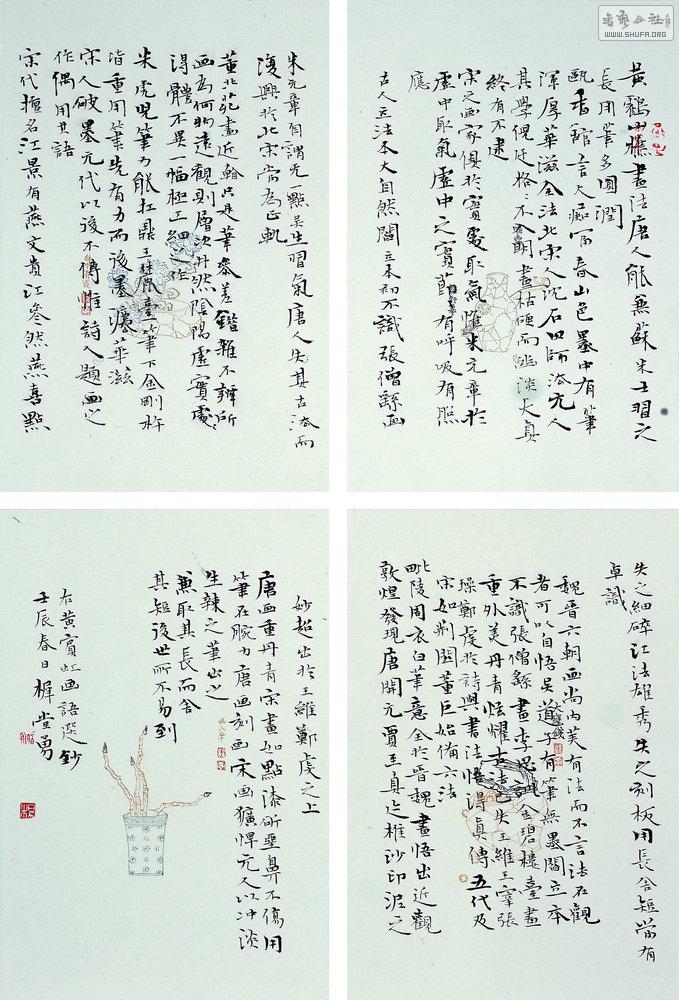 黃鶴山樵畫法唐人能無蘇米士習之
長用筆多圓潤
甌香館言大癡富春山色墨中有筆
渾厚華滋全法北宋人沈石田師法元人
其學倪迂格格不入明畫枯硬而幽淡天真
終有不逮
宋之畫家俱於實處取氣惟米元章於
虛中取氣虛中之實節節有呼吸有照
應
古人立法本大自然閻立本初不識張僧繇畫
米元章自謂無一點吳生習氣唐人失其古法而
復興於北宋當為正軌
董北苑畫近輪只是筆參差錯雜不辨所
畫為何物遠觀則層次井然陰陽虛實處處
得體不異一幅極工細之作
米虎兒筆力能扛鼎王麓臺筆下金剛杵
皆重用筆先有力而後墨瀋華滋
宋人破墨元代以後不傳惟詩人題畫之
作偶用其語
宋代擅名江景有燕文貴江參然燕喜點
失之細碎江法雄秀失之刻板用長舍短當有
卓識
魏晉六朝畫尚內美有法而不言法在觀
者可以自悟吳道子有筆無墨閻立本
不識張僧繇畫李思訓金碧樓臺畫
重外美丹青炫耀古法已失王維王宰張
璪鄭虔於詩與書法悟得真傳五代及
宋如荊關董巨始備六法
毗陵周衣白筆意全於晉魏畫悟出近觀
敦煌發現唐開元賈至真迹椎沙印泥之
妙超出於王維鄭虔之上
唐畫重丹青宋畫如點漆斫堊鼻不傷用
筆在腕力唐畫刻畫宋畫獷悍元人以沖淡
生辣之筆出之
兼取其長而舍
其短後世所不易到
右黃賓虹畫語選鈔
壬辰春日樨堂勇
WWW.SHUFA.ORG